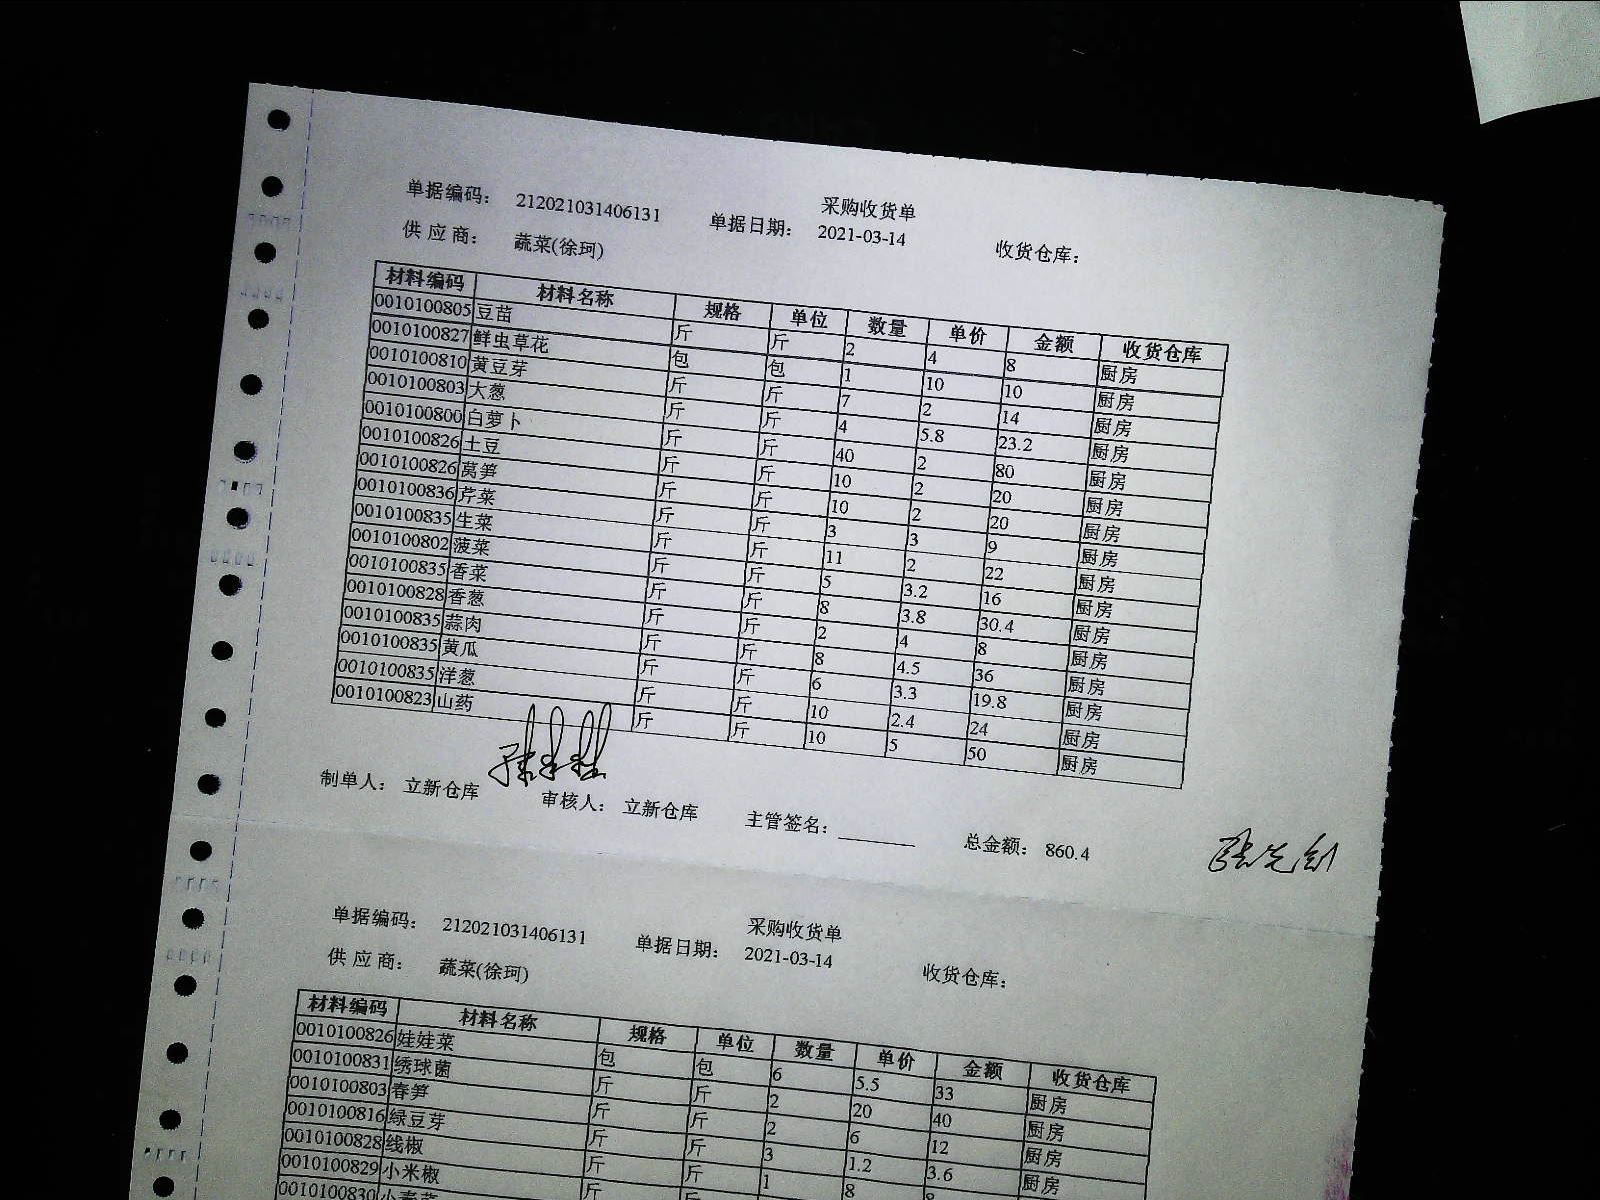 采购收货单
单据编码： 212021031406131 单据日期： 2021-03-14 收货仓库：
供 应 商： 蔬菜(徐珂)
材料编码 材料名称 规格 单位 数量 单价 金额 收货仓库
0010100805 豆苗 斤 斤 2 4 8 厨房
0010100827 鲜虫草花 包 包 1 10 10 厨房
0010100810 黄豆芽 斤 斤 7 2 14 厨房
0010100803 大葱 斤 斤 4 5.8 23.2 厨房
0010100800 白萝卜 斤 斤 40 2 80 厨房
0010100826 土豆 斤 斤 10 2 20 厨房
0010100826 莴笋 斤 斤 10 2 20 厨房
0010100836 芹菜 斤 斤 3 3 9 厨房
0010100835 生菜 斤 斤 11 2 22 厨房
0010100802 菠菜 斤 斤 5 3.2 16 厨房
0010100835 香菜 斤 斤 8 3.8 30.4 厨房
0010100828 香葱 斤 斤 2 4 8 厨房
0010100835 蒜肉 斤 斤 8 4.5 36 厨房
0010100835 黄瓜 斤 斤 6 3.3 19.8 厨房
0010100835 洋葱 斤 斤 10 2.4 24 厨房
0010100823 山药 斤 斤 10 5 50 厨房
制单人： 立新仓库 审核人： 立新仓库 主管签名： 总金额： 860.4
采购收货单
单据编码： 212021031406131 单据日期： 2021-03-14 收货仓库：
供 应 商： 蔬菜(徐珂)
材料编码 材料名称 规格 单位 数量 单价 金额 收货仓库
0010100826 娃娃菜 包 包 6 5.5 33 厨房
0010100831 绣球菌 斤 斤 2 20 40 厨房
0010100803 春笋 斤 斤 2 6 12 厨房
0010100816 绿豆芽 斤 斤 3 1.2 3.6 厨房
0010100828 线椒 斤 斤 1 8 8
0010100829 小米椒 斤
0010100830